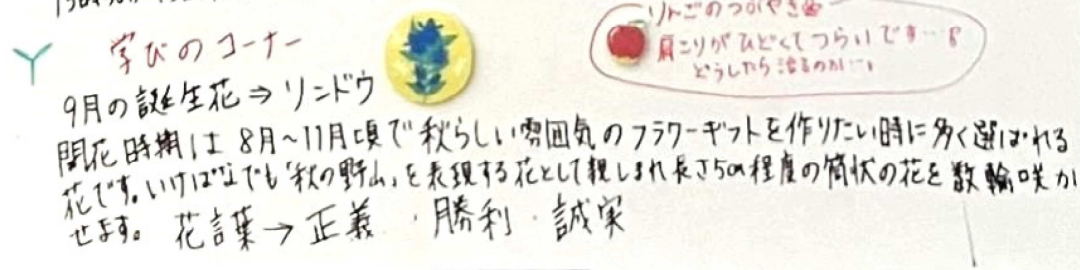 学びのコーナー
りんごのつぶやき
肩こりがひどくてつらいです…
どうしたら治るのか…
9月の誕生花⇒リンドウ
開花時期は8月～11月頃で秋らしい雰囲気のフラワーギフトを作りたい時に多く選ばれる
花です。いけばなでも「秋の野山」を表現する花として親しまれ長さ5cm程度の筒状の花を数輪咲か
せます。 花言葉→正義・勝利・誠実